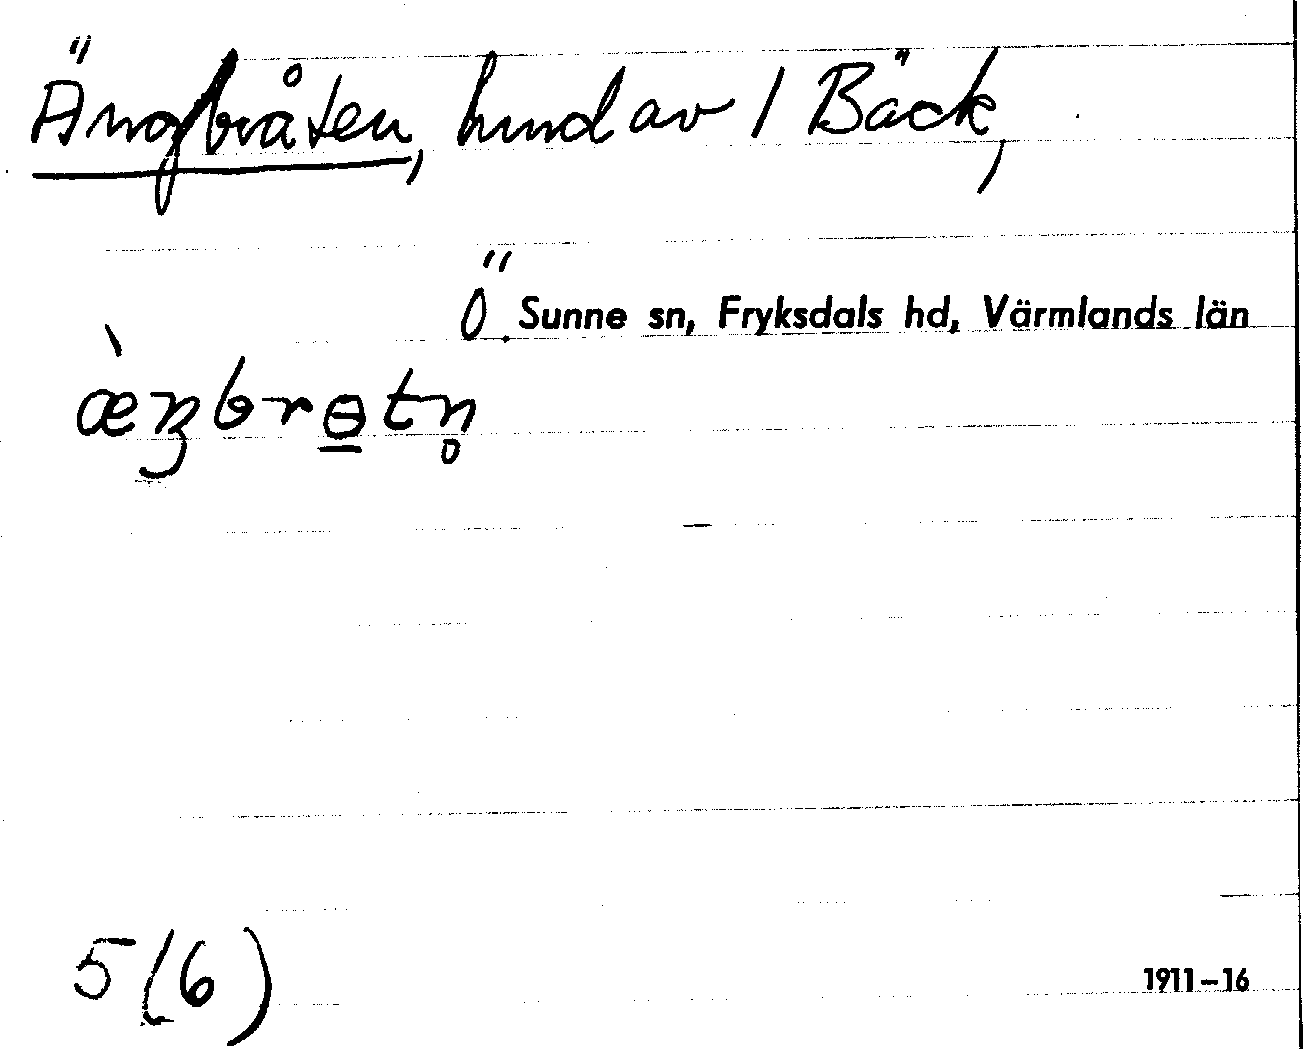 Ängbråten, hmd av 1 Bäck,
Ö. Sunne sn, Fryksdals hd, Värmlands län
æ̀ŋbrɵtn̥
5(6)
1911–16